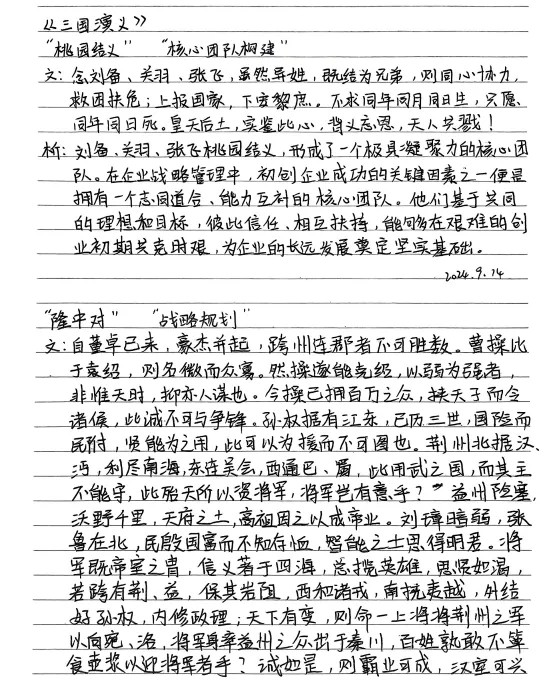 《三国演义》
“桃园结义” “核心团队构建”
文：念刘备、关羽、张飞，虽然异姓，既结为兄弟，则同心协力，
救困扶危；上报国家，下安黎庶。不求同年同月同日生，只愿
同年同日死。皇天后土，实鉴此心，背义忘恩，天人共戮！
析：刘备、关羽、张飞桃园结义，形成了一个极具凝聚力的核心团
队。在企业战略管理中，初创企业成功的关键因素之一便是
拥有一个志同道合、能力互补的核心团队。他们基于共同
的理想和目标，彼此信任、相互扶持，能够在艰难的创
业初期共克时艰，为企业的长远发展奠定坚实基础。
2024.9.14
“隆中对” “战略规划”
文：自董卓已来，豪杰并起，跨州连郡者不可胜数。曹操比
于袁绍，则名微而众寡。然操遂能克绍，以弱为强者，
非惟天时，抑亦人谋也。今操已拥百万之众，挟天子而令
诸侯，此诚不可与争锋。孙权据有江东，已历三世，国险而
民附，贤能为之用，此可以为援而不可图也。荆州北据汉、
沔，利尽南海，东连吴会，西通巴、蜀，此用武之国，而其主
不能守，此殆天所以资将军，将军岂有意乎？”益州险塞，
沃野千里，天府之土，高祖因之以成帝业。刘璋暗弱，张
鲁在北，民殷国富而不知存恤，智能之士思得明君。将
军既帝室之胄，信义著于四海，总揽英雄，思贤如渴，
若跨有荆、益，保其岩阻，西和诸戎，南抚夷越，外结
好孙权，内修政理；天下有变，则命一上将将荆州之军
以向宛、洛，将军身率益州之众出于秦川，百姓孰敢不箪
食壶浆以迎将军者乎？诚如是，则霸业可成，汉室可兴